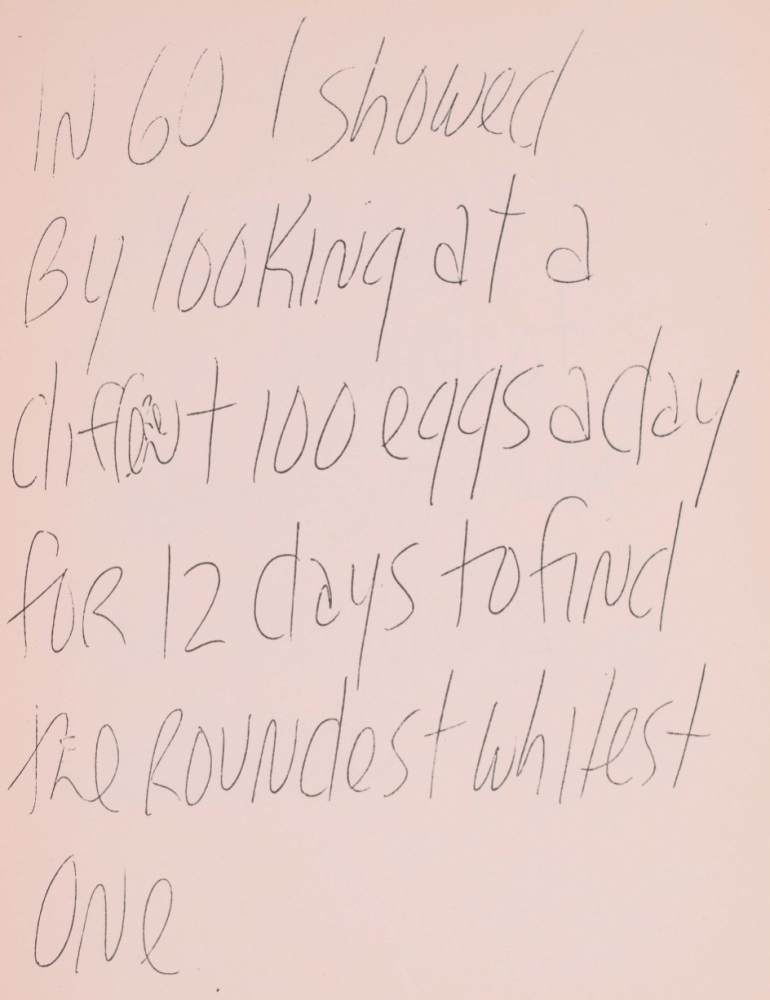 IN 60 I showed
By looKINg at a
diffent 100 eggs a day
foR 12 days to find
the RouNdest whitest
ONe